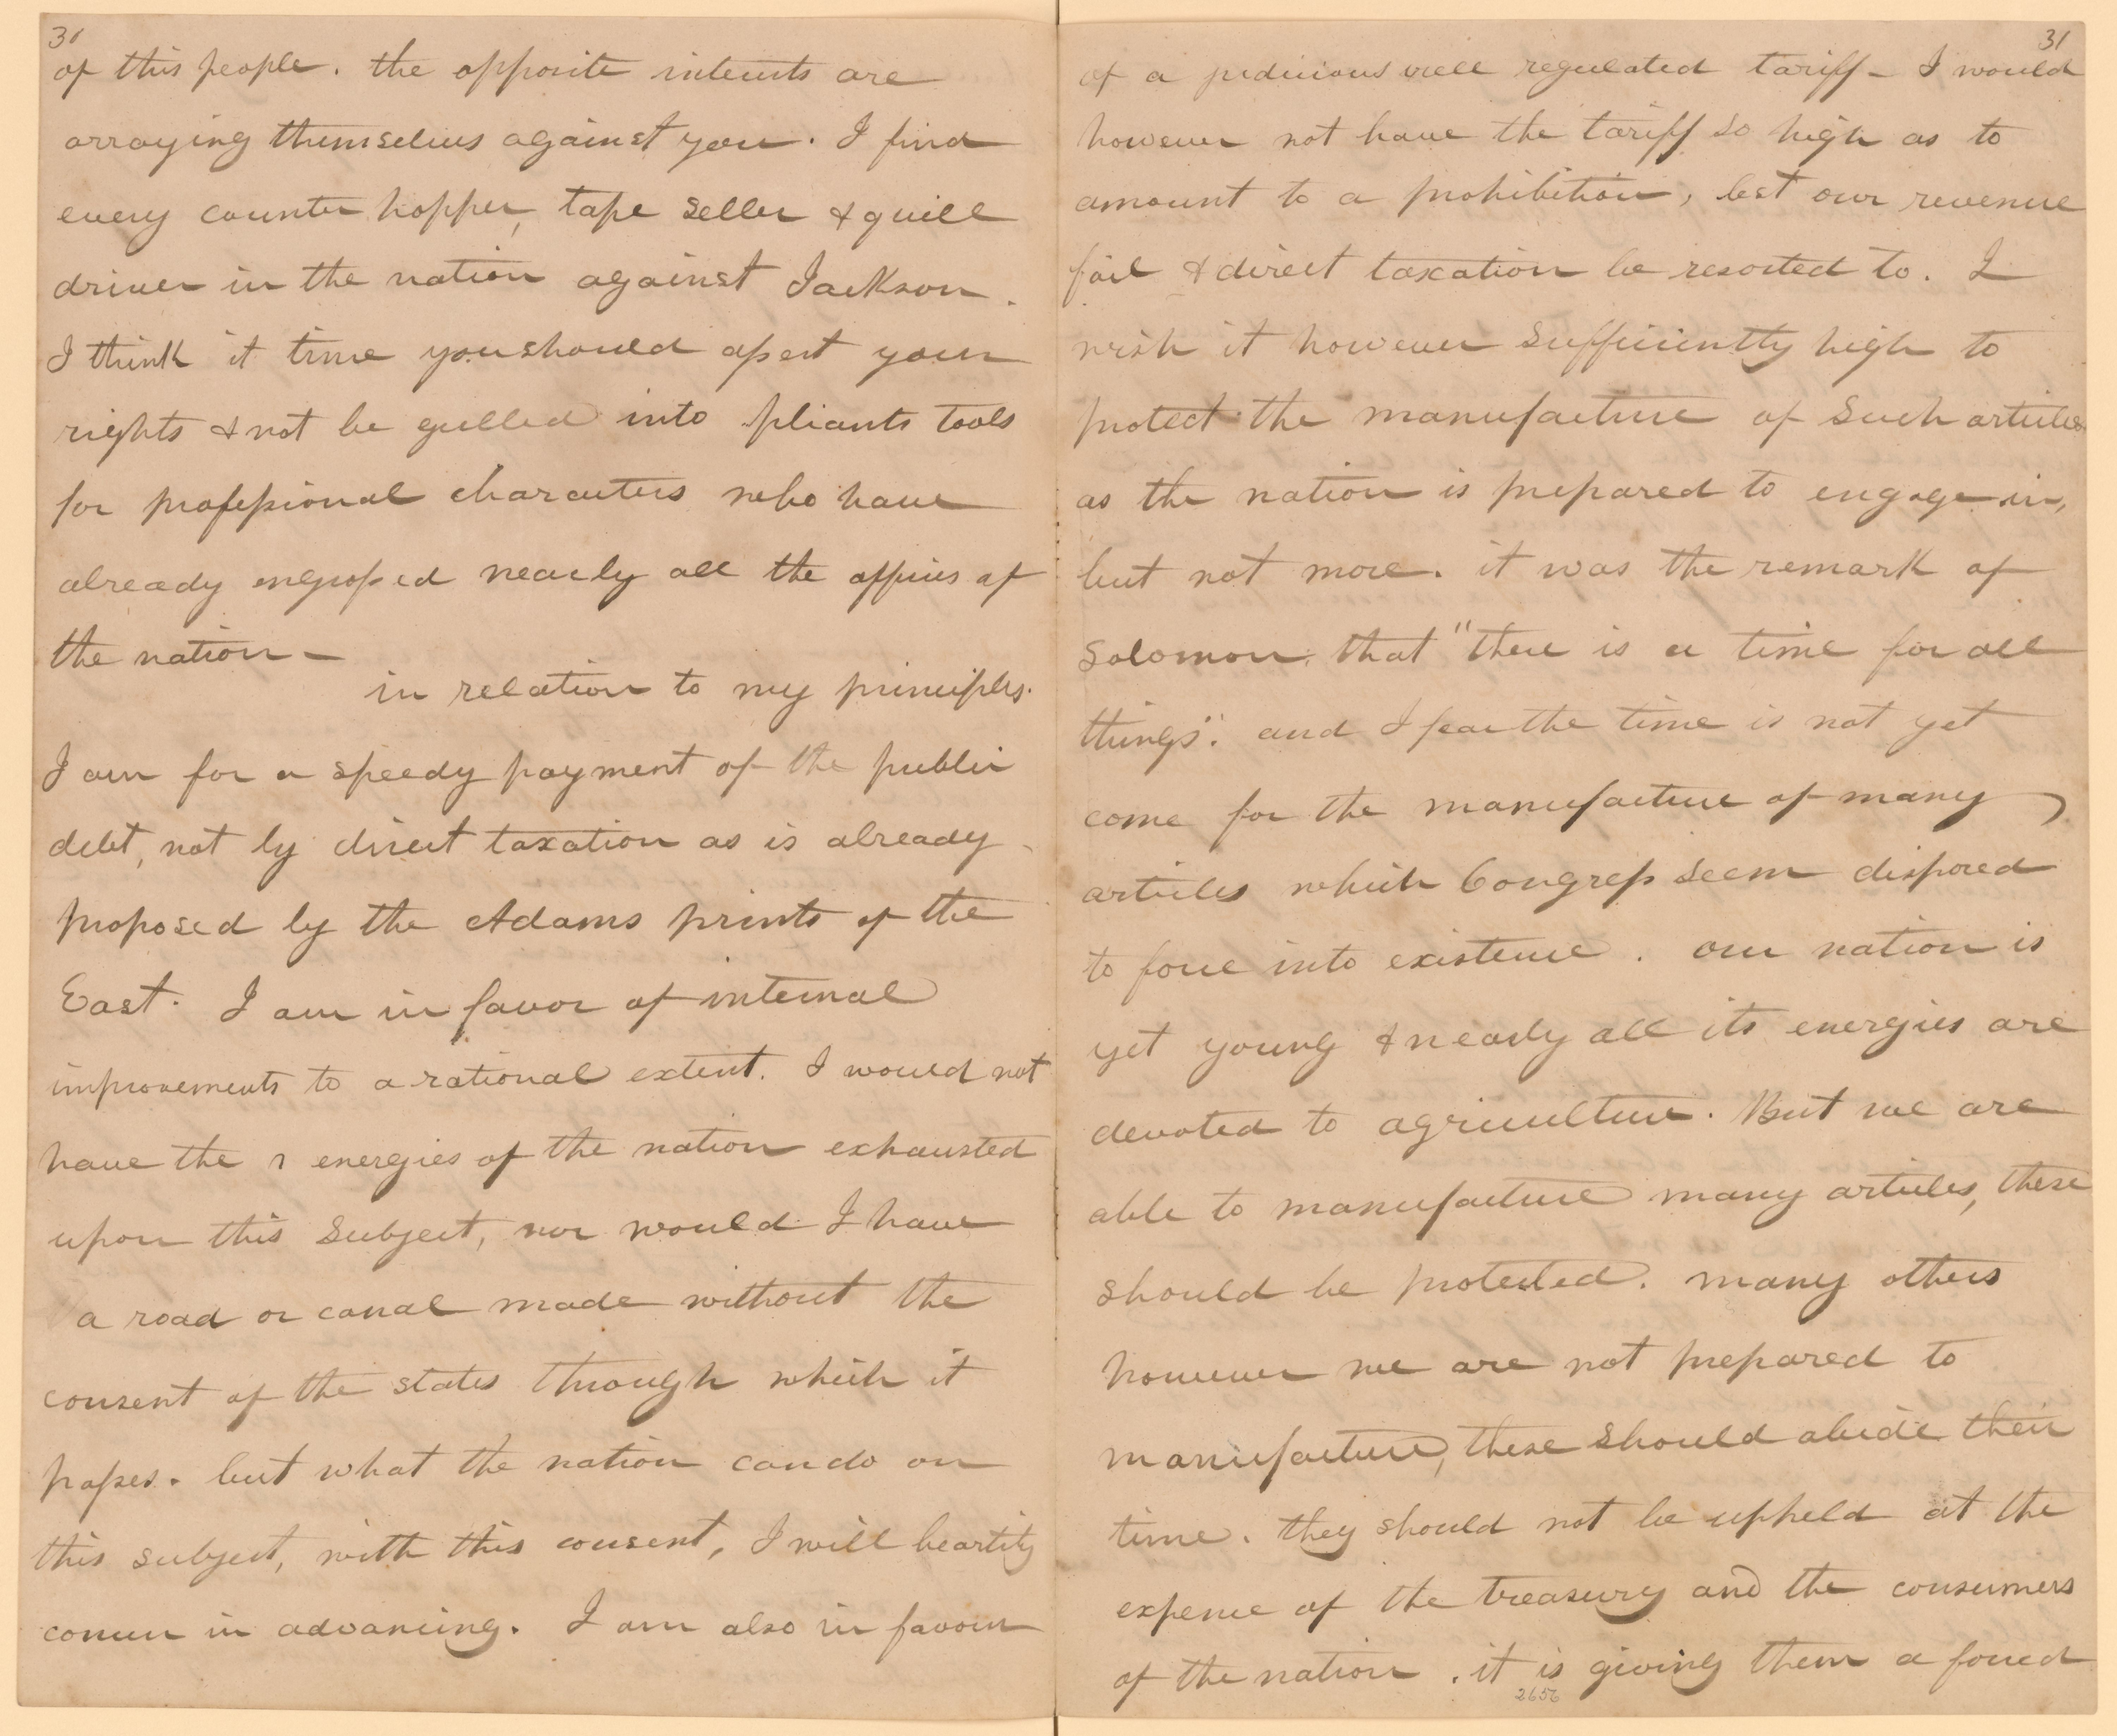 30
of this people. the opposite interests are
arraying themselves against you. I find
every counter hopper, tape seller & quill
driver in the nation against Jackson.
I think it time you should assert your
rights & not be gulled into pliants tools
for professional characters who have
already engrossed nearly all the offices of
the nation —
in relation to my principles.
I am for a speedy payment of the public
debt, not by direct taxation as is already
proposed by the Adams prints of the
East. I am in favor of internal
improvements to a rational extent. I would not
have the energies of the nation exhausted
upon this subject, nor would I have
a road or canal made without the
consent of the states through which it
passes. but what the nation can do on
this subject, with this consent, I will heartily
concur in advancing. I am also in favour
31
of a judicious well regulated tariff - I would
however not have the tariff so high as to
amount to a prohibition, lest our revenue
fail & direct taxation be resorted to. I
wish it however sufficiently high to
protect the manufacture of such articles
as the nation is prepared to engage in,
but not more. it was the remark of
Solomon, that "there is a time for all
things": and I fear the time is not yet
come for the manufacture of many
articles which Congress seem disposed
to force into existence. our nation is
yet young & nearly all its energies are
devoted to agriculture. But we are
able to manufacture many articles, these
should be protected. many others
however we are not prepared to
manufacture, these should abide their
time. they should not be upheld at the
expence of the treasury and the consumers
of the nation. it is giving them a forced
2656